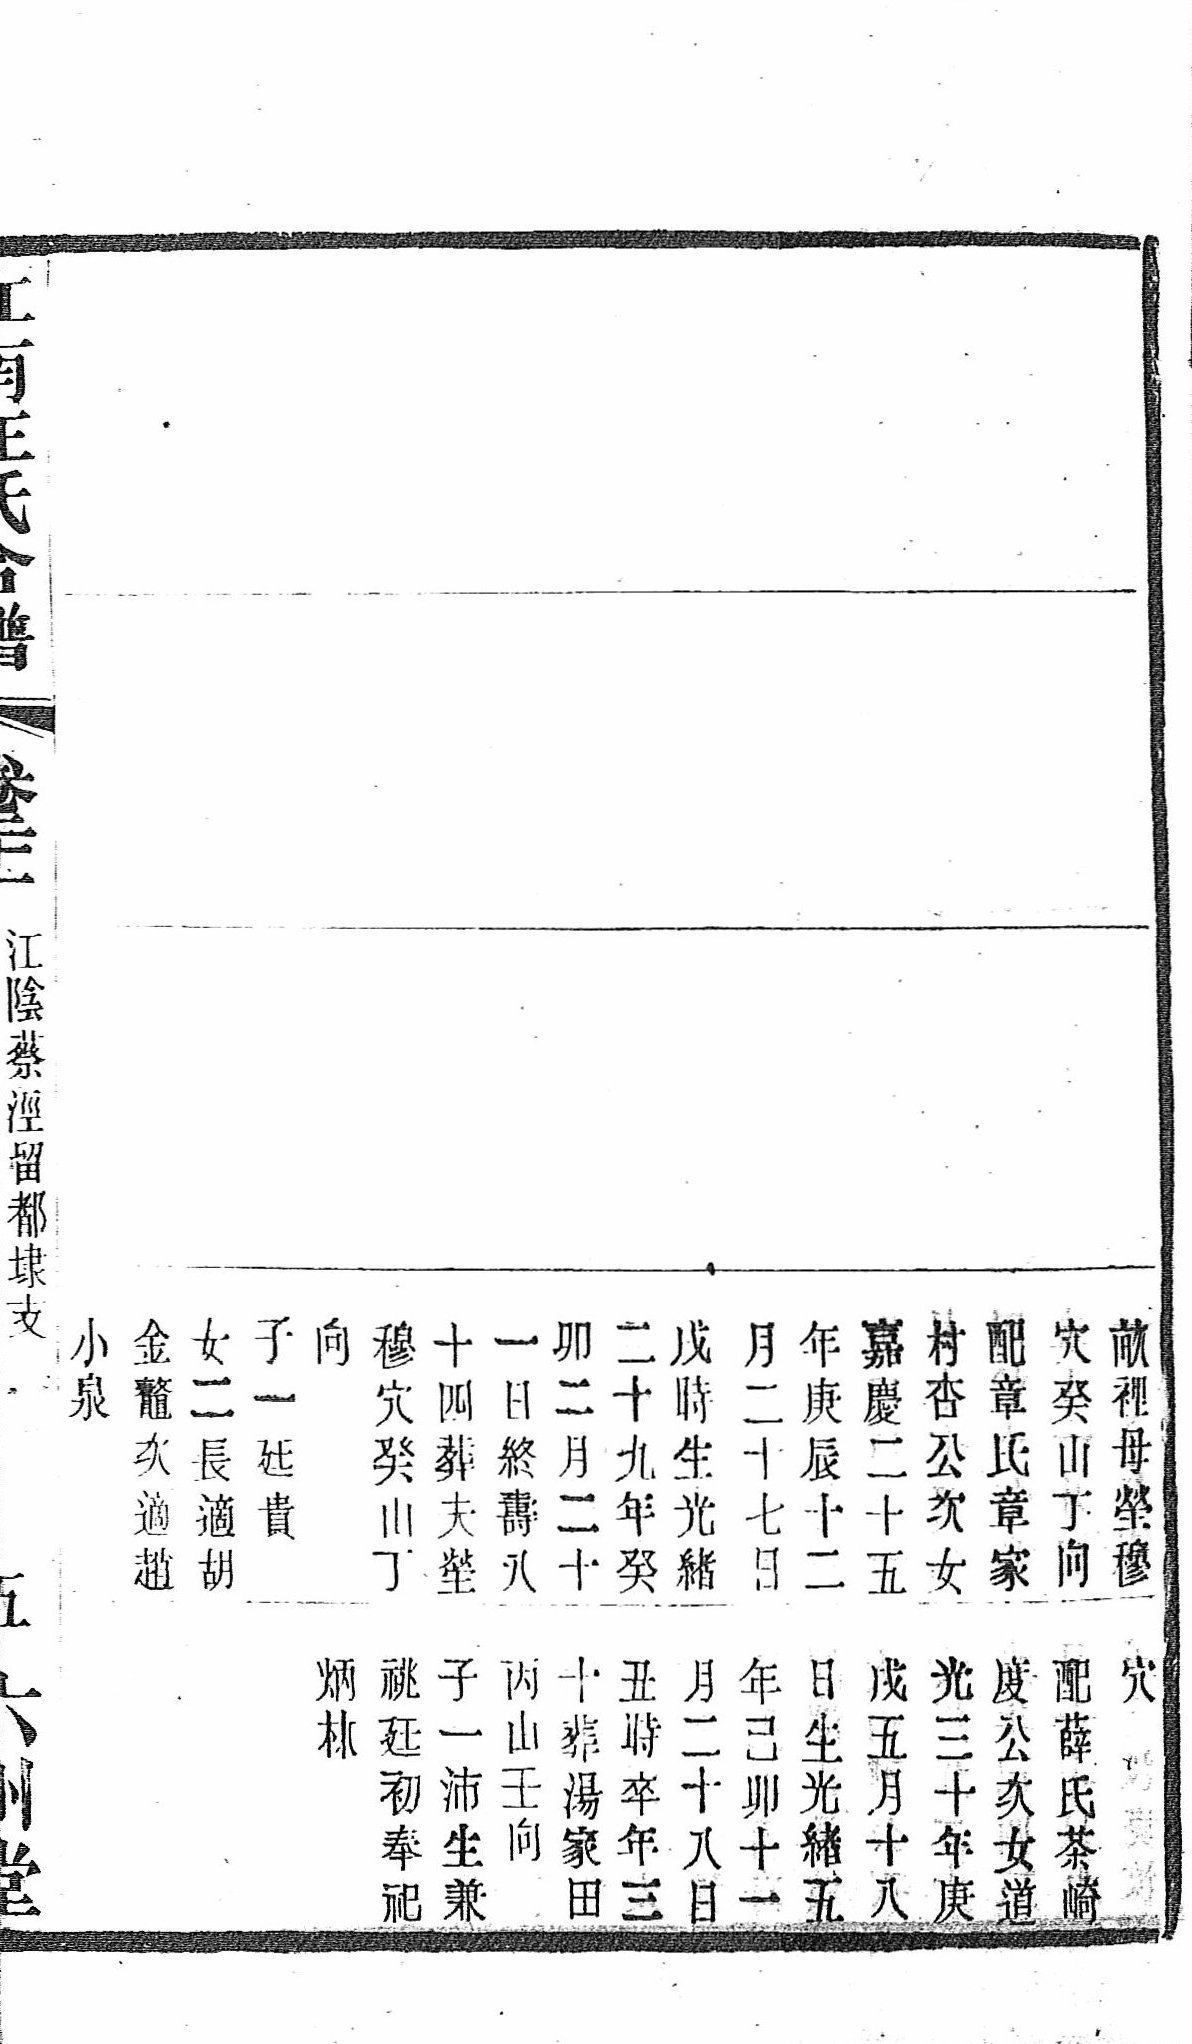 畝裡母塋穆
穴癸山丁向
配章氏章家
村杏公次女
嘉慶二十五
年庚辰十二
月二十七日
戌時生光緒
二十九年癸
卯二月二十
一日終壽八
十四葬夫塋
穆穴癸山丁
向
子一廷貴
女二長適胡
金鼇次適趙
小泉
穴
配薛氏茶崎
度公次女道
光三十年庚
戌五月十八
日生光緒五
年己卯十一
月二十八日
丑時卒年三
十葬湯家田
丙山壬向
子一沛生兼
祧廷初奉祀
炳林
江南王氏合譜
江陰蔡涇留都埭支
五